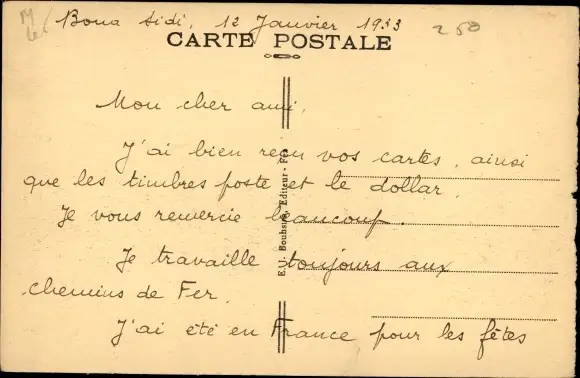 Bou a Sidi, 12 Janvier 1933
250
CARTE POSTALE
Mon cher ami,
J'ai bien reçu vos cartes, ainsi
que les timbres poste et le dollar.
Je vous remercie beaucoup.
Je travaille toujours aux
chemins de Fer.
J'ai été en France pour les fêtes
E. J. Bouhsira, Editeur - Fès